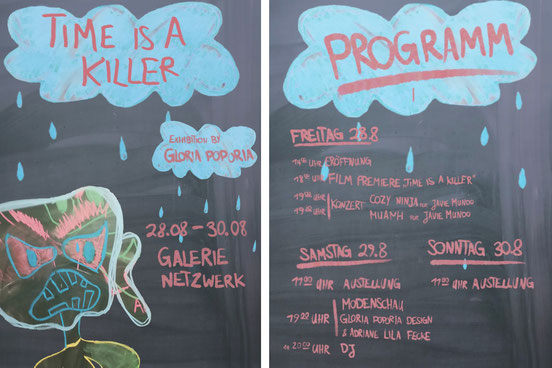 TIME IS A
KILLER
EXHIBITION BY
GLORIA POPORIA
28.08 – 30.08
GALERIE
NETZWERK
A
PROGRAMM
FREITAG 28.8
UHR ERÖFFNUNG
UHR FILM PREMIERE „TIME IS A KILLER"
19 UHR KONZERT: COZY NINJA JAVIE MUNDO
19 UHR MUAMH JAVIE MUNDO
SAMSTAG 29.8
11 00 UHR AUSTELLUNG
MODENSCHAU
19 00 UHR GLORIA POPORIA DESIGN
& ADRIANE LILA FECKE
20 00 UHR DJ
SONNTAG 30.8
11 00 UHR AUSTELLUNG